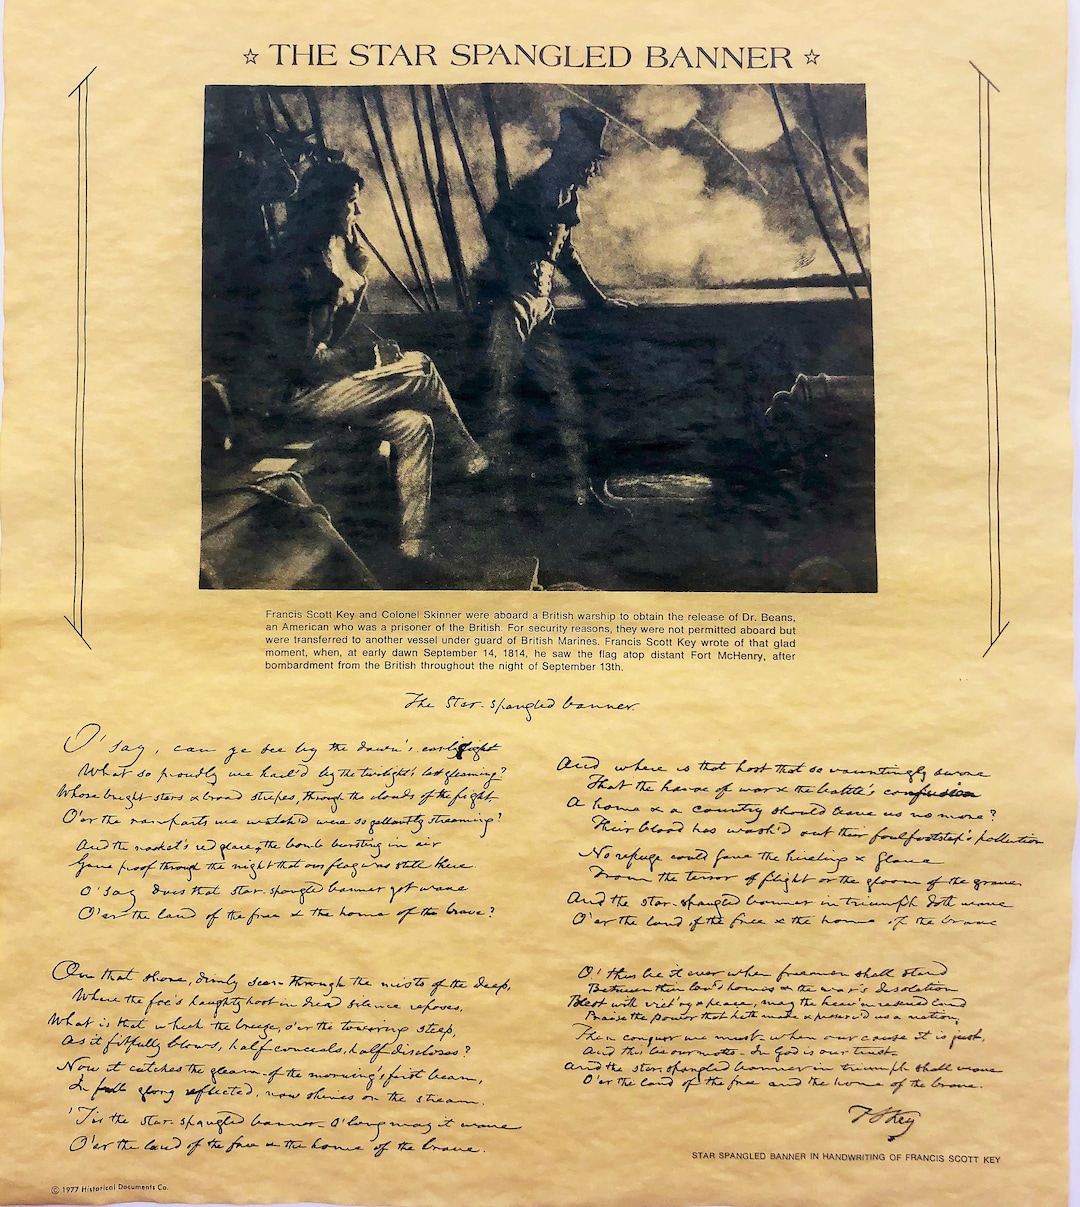 ☆ THE STAR SPANGLED BANNER ☆
Francis Scott Key and Colonel Skinner were aboard a British warship to obtain the release of Dr. Beans,
an American who was a prisoner of the British. For security reasons, they were not permitted aboard but
were transferred to another vessel under guard of British Marines. Francis Scott Key wrote of that glad
moment, when, at early dawn September 14, 1814, he saw the flag atop distant Fort McHenry, after
bombardment from the British throughout the night of September 13th.
The Star-spangled banner.
O' say, can ye see by the dawn's early light
What so proudly we hail'd by the twilight's last gleaming?
Whose bright stars & broad stripes, through the clouds of the fight,
O'er the ramparts we watch'd were so gallantly streaming?
And the rocket's red glare, the bomb bursting in air
Gave proof through the night that our flag was still there
O' say does that star-spangled banner yet wave
O'er the land of the free & the home of the brave?
On that shore, dimly seen through the mists of the deep,
Where the foe's haughty host in dread silence reposes,
What is that which the breeze, o'er the towering steep,
As it fitfully blows, half conceals, half discloses?
Now it catches the gleam of the morning's first beam,
In full glory reflected, now shines on the stream.
'Tis the star-spangled banner - O' long may it wave
O'er the land of the free & the home of the brave.
And where is that host that so vauntingly swore
That the havoc of war & the battle's confusion
A home & a country should leave us no more?
Their blood has wash'd out their foul footstep's pollution
No refuge could save the hireling & slave
From the terror of flight or the gloom of the grave
And the star-spangled banner in triumph doth wave
O'er the land of the free & the home of the brave
O! thus be it ever when freemen shall stand
Between their lov'd homes & the war's desolation
Blest with vict'ry & peace, may the heav'n rescued land
Praise the power that hath made & preserv'd us a nation,
Then conquer we must - when our cause it is just,
And this be our motto - In God is our trust.
And the star-spangled banner in triumph shall wave
O'er the land of the free and the home of the brave.
F S Key
STAR SPANGLED BANNER IN HANDWRITING OF FRANCIS SCOTT KEY
© 1977 Historical Documents Co.